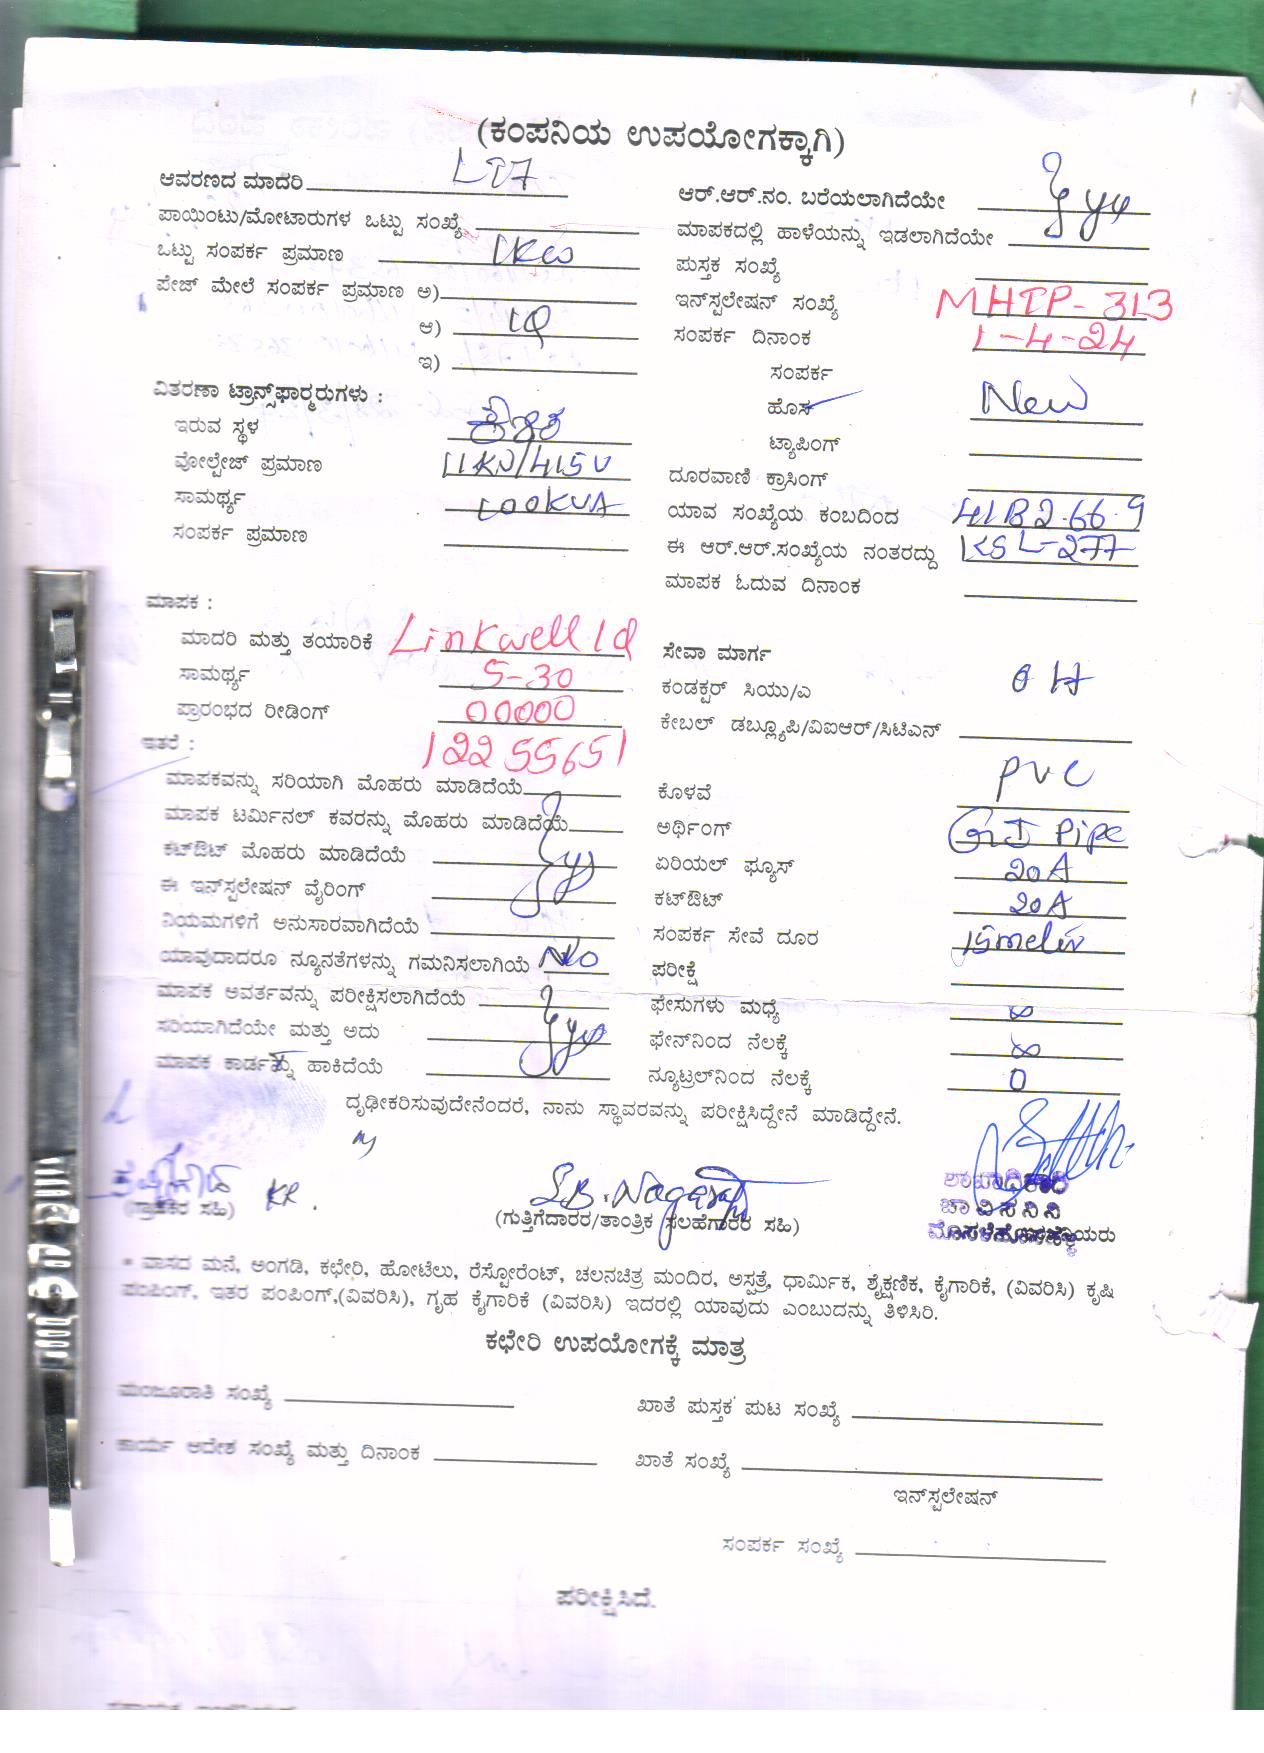 (ಕಂಪನಿಯ ಉಪಯೋಗಕ್ಕಾಗಿ)
ಆವರಣದ ಮಾದರಿ LT7
ಪಾಯಿಂಟು/ಮೋಟಾರುಗಳ ಒಟ್ಟು ಸಂಖ್ಯೆ
ಒಟ್ಟು ಸಂಪರ್ಕ ಪ್ರಮಾಣ 1KW
ಪೇಜ್ ಮೇಲೆ ಸಂಪರ್ಕ ಪ್ರಮಾಣ ಅ)
ಆ) 1Φ
ಇ)
ವಿತರಣಾ ಟ್ರಾನ್ಸ್‌ಫಾರ್‍ಮರುಗಳು :
ಇರುವ ಸ್ಥಳ
ವೋಲ್ಟೇಜ್ ಪ್ರಮಾಣ 11KV/415V
ಸಾಮರ್ಥ್ಯ 100KVA
ಸಂಪರ್ಕ ಪ್ರಮಾಣ
ಆರ್.ಆರ್.ನಂ. ಬರೆಯಲಾಗಿದೆಯೇ
ಮಾಪಕದಲ್ಲಿ ಹಾಳೆಯನ್ನು ಇಡಲಾಗಿದೆಯೇ
ಪುಸ್ತಕ ಸಂಖ್ಯೆ
ಇನ್‌ಸ್ಟಲೇಷನ್ ಸಂಖ್ಯೆ MHTP-313
ಸಂಪರ್ಕ ದಿನಾಂಕ 1-4-24
ಸಂಪರ್ಕ
ಹೊಸ New
ಟ್ಯಾಪಿಂಗ್
ದೂರವಾಣಿ ಕ್ರಾಸಿಂಗ್
ಯಾವ ಸಂಖ್ಯೆಯ ಕಂಬದಿಂದ
ಈ ಆರ್.ಆರ್.ಸಂಖ್ಯೆಯ ನಂತರದ್ದು KSL-277
ಮಾಪಕ ಓದುವ ದಿನಾಂಕ
ಮಾಪಕ :
ಮಾದರಿ ಮತ್ತು ತಯಾರಿಕೆ Linkwell 1Φ
ಸಾಮರ್ಥ್ಯ 5-30
ಪ್ರಾರಂಭದ ರೀಡಿಂಗ್ 00000
ಇತರೆ : 12255651
ಮಾಪಕವನ್ನು ಸರಿಯಾಗಿ ಮೊಹರು ಮಾಡಿದೆಯೆ
ಮಾಪಕ ಟರ್ಮಿನಲ್ ಕವರನ್ನು ಮೊಹರು ಮಾಡಿದೆಯೆ
ಕಟ್‌ಔಟ್ ಮೊಹರು ಮಾಡಿದೆಯೆ
ಈ ಇನ್‌ಸ್ಟಲೇಷನ್ ವೈರಿಂಗ್
ನಿಯಮಗಳಿಗೆ ಅನುಸಾರವಾಗಿದೆಯೆ
ಯಾವುದಾದರೂ ನ್ಯೂನತೆಗಳನ್ನು ಗಮನಿಸಲಾಗಿಯೆ No
ಮಾಪಕ ಅವರ್ತವನ್ನು ಪರೀಕ್ಷಿಸಲಾಗಿದೆಯೆ
ಸರಿಯಾಗಿದೆಯೇ ಮತ್ತು ಅದು
ಮಾಪಕ ಕಾರ್ಡನ್ನು ಹಾಕಿದೆಯೆ
ಸೇವಾ ಮಾರ್ಗ
ಕಂಡಕ್ಟರ್ ಸಿಯು/ಎ OH
ಕೇಬಲ್ ಡಬ್ಲ್ಯೂಪಿ/ವಿಐಆರ್/ಸಿಟಿಎನ್
ಕೊಳವೆ PVC
ಅರ್ಥಿಂಗ್ GI Pipe
ಏರಿಯಲ್ ಫ್ಯೂಸ್ 20A
ಕಟ್‌ಔಟ್ 20A
ಸಂಪರ್ಕ ಸೇವೆ ದೂರ
ಪರೀಕ್ಷೆ
ಫೇಸುಗಳು ಮಧ್ಯೆ ∞
ಫೇನ್‌ನಿಂದ ನೆಲಕ್ಕೆ ∞
ನ್ಯೂಟ್ರಲ್‌ನಿಂದ ನೆಲಕ್ಕೆ 0
ದೃಢೀಕರಿಸುವುದೇನೆಂದರೆ, ನಾನು ಸ್ಥಾವರವನ್ನು ಪರೀಕ್ಷಿಸಿದ್ದೇನೆ ಮಾಡಿದ್ದೇನೆ.
(ಗ್ರಾಹಕರ ಸಹಿ)
(ಗುತ್ತಿಗೆದಾರರ/ತಾಂತ್ರಿಕ ಸಲಹೆಗಾರರ ಸಹಿ)
ಶಾಖಾಧಿಕಾರಿ
ಚಾ ವಿ ಸ ನಿ ನಿ
* ವಾಸದ ಮನೆ, ಅಂಗಡಿ, ಕಛೇರಿ, ಹೋಟೆಲು, ರೆಸ್ಟೋರೆಂಟ್, ಚಲನಚಿತ್ರ ಮಂದಿರ, ಅಸ್ಪತ್ರೆ, ಧಾರ್ಮಿಕ, ಶೈಕ್ಷಣಿಕ, ಕೈಗಾರಿಕೆ, (ವಿವರಿಸಿ) ಕೃಷಿ
ಪಂಪಿಂಗ್, ಇತರ ಪಂಪಿಂಗ್,(ವಿವರಿಸಿ), ಗೃಹ ಕೈಗಾರಿಕೆ (ವಿವರಿಸಿ) ಇದರಲ್ಲಿ ಯಾವುದು ಎಂಬುದನ್ನು ತಿಳಿಸಿರಿ.
ಕಛೇರಿ ಉಪಯೋಗಕ್ಕೆ ಮಾತ್ರ
ಮಂಜೂರಾತಿ ಸಂಖ್ಯೆ
ಖಾತೆ ಪುಸ್ತಕ ಪುಟ ಸಂಖ್ಯೆ
ಕಾರ್ಯ ಆದೇಶ ಸಂಖ್ಯೆ ಮತ್ತು ದಿನಾಂಕ
ಖಾತೆ ಸಂಖ್ಯೆ
ಇನ್‌ಸ್ಟಲೇಷನ್
ಸಂಪರ್ಕ ಸಂಖ್ಯೆ
ಪರೀಕ್ಷಿಸಿದೆ.